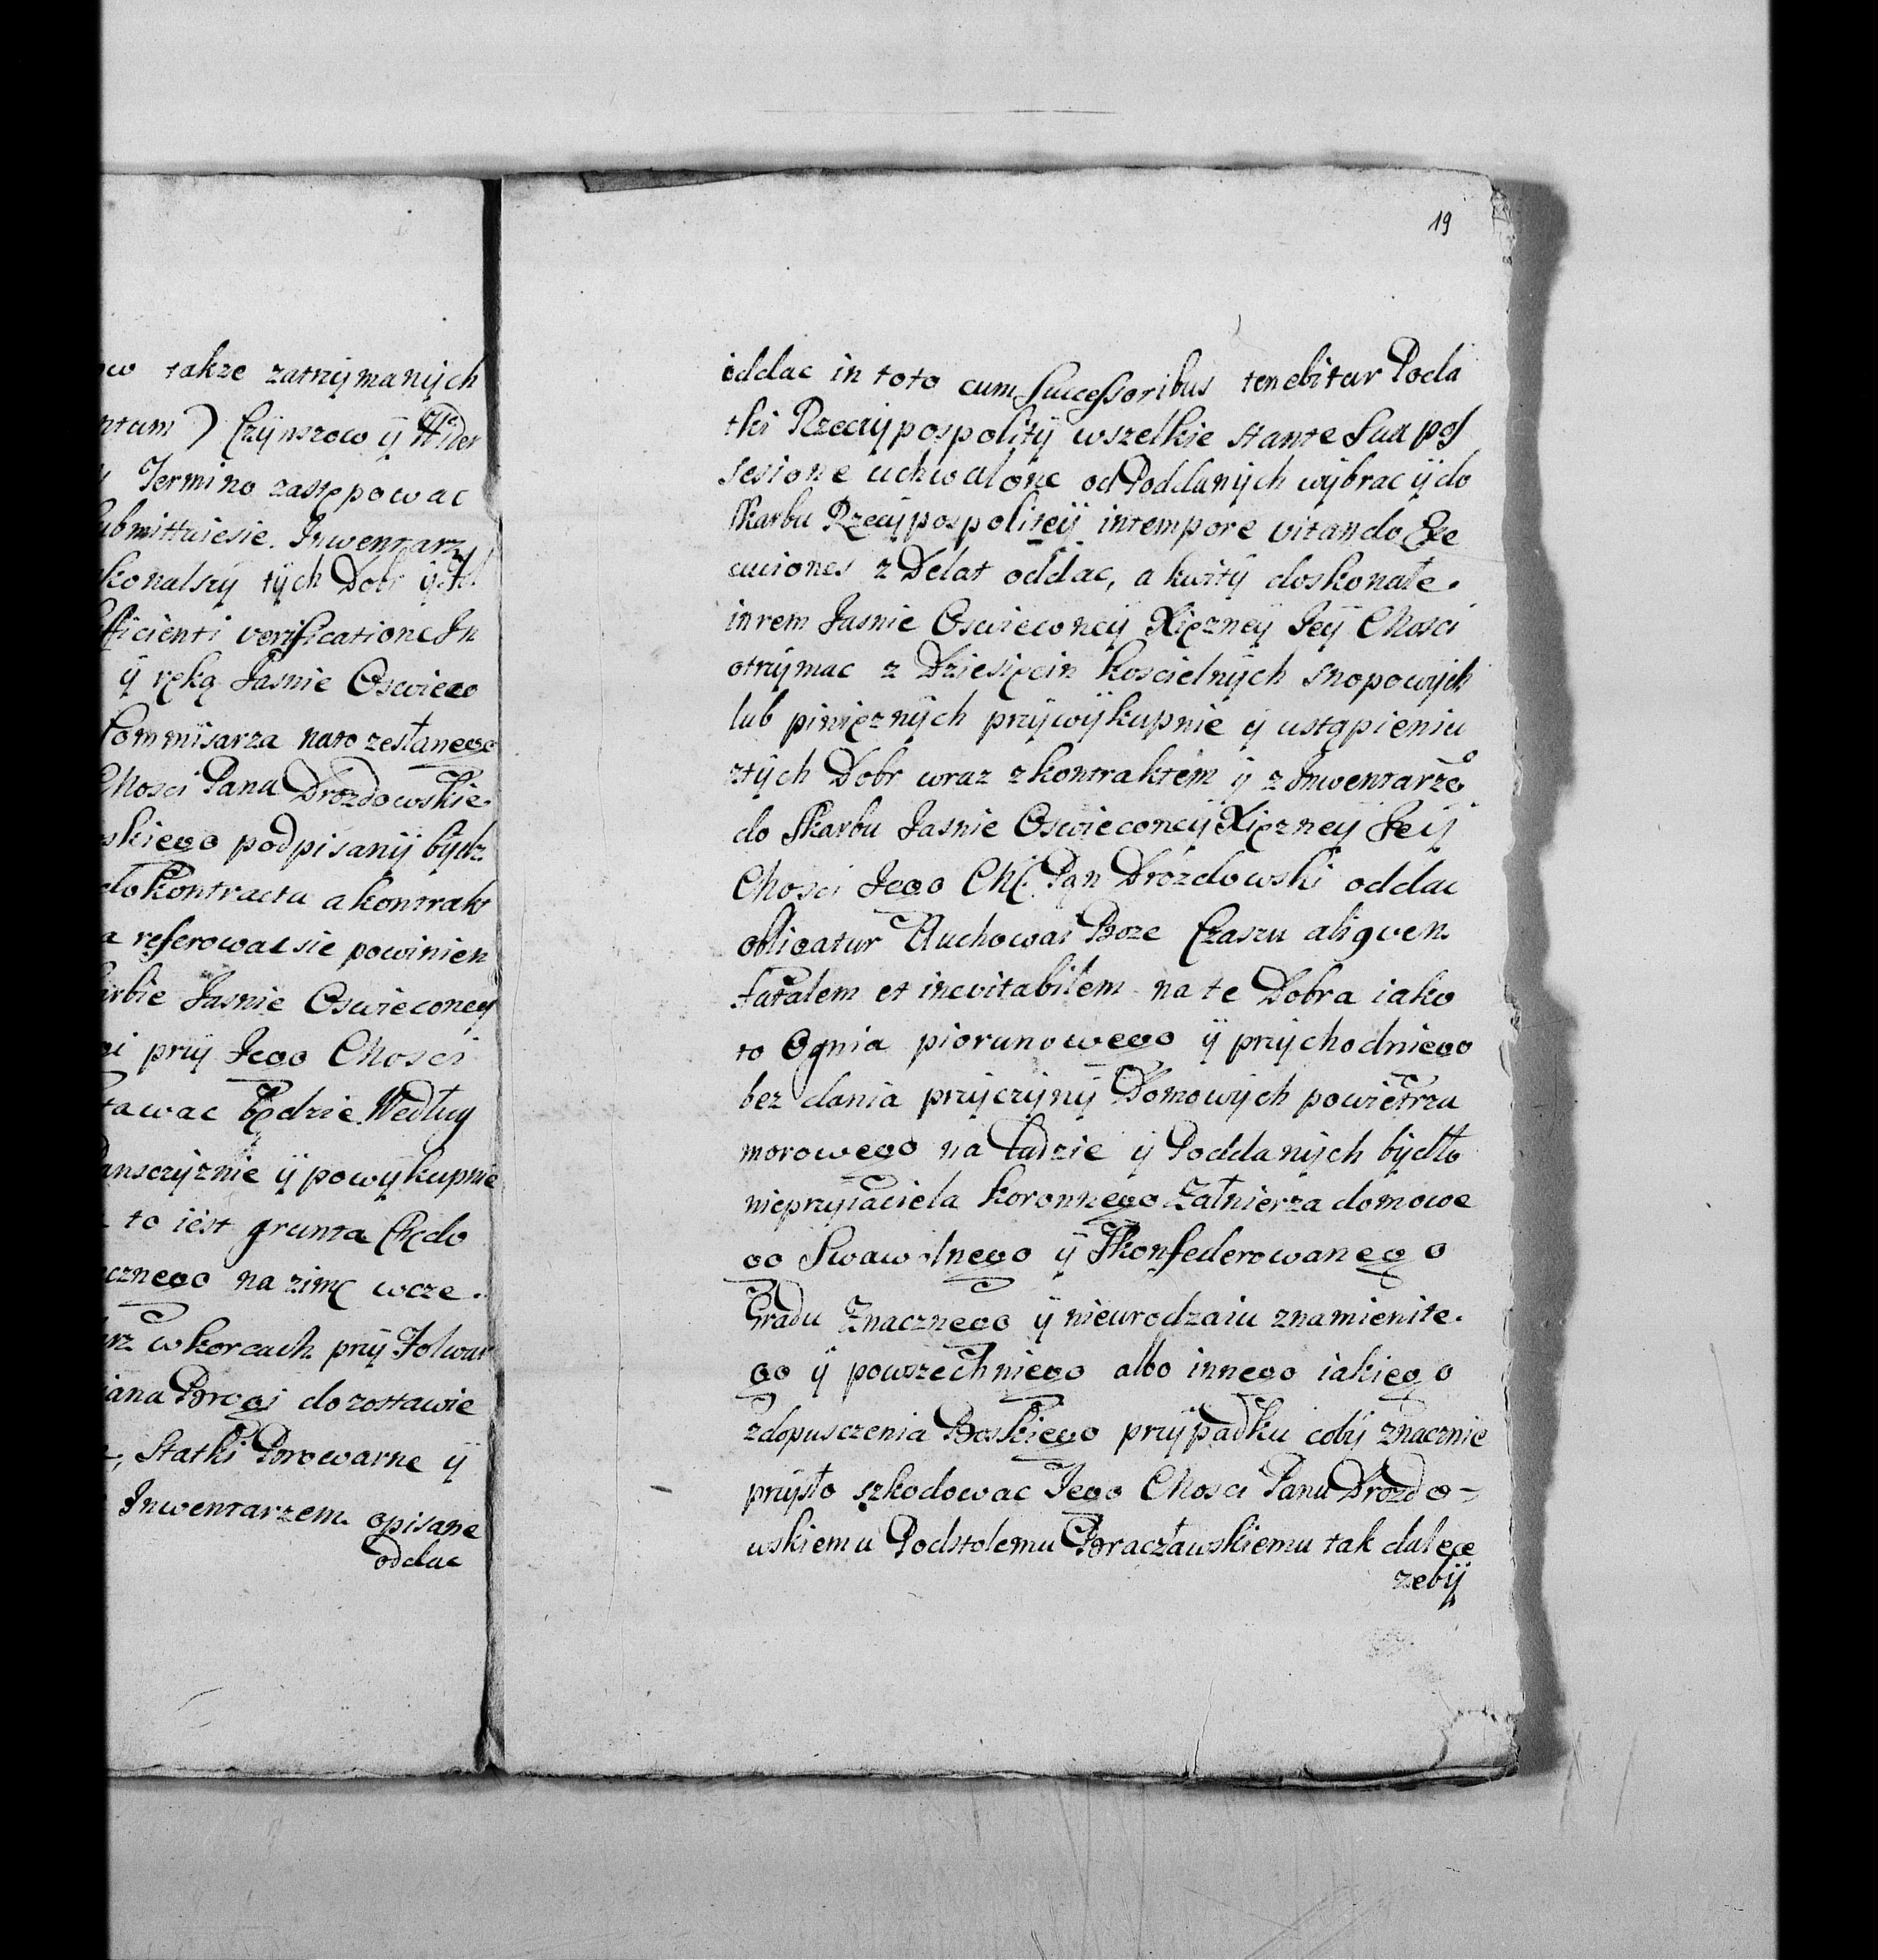 takze zatrzymanych
Czynszow ÿ Wider
Termino zastępowac
submittuiesie. Inwentarz
tÿch Dobr ÿ
verificatione In
ÿ ręką Jasnie Oswieco
Commisarza nato zesłanego
Chosci Pana Drozdowskie.
skiego podpisanÿ bÿdz
do kontractu a kontrakt
a referowac sie powinien
Jasnie Oswieconeÿ
przÿ Jego Chosci
będzie. Według
ÿ powÿkupnie
to iest grunta
na zimę wcze.
w korcach przÿ Folwar
Brogi dozostawie
Statki Browarne ÿ
Inwentarzem opisane
oddac
19
oddac in toto cum Successoribus tenebitur Poda
tki Rzeczÿpospolitÿ wszelkie stante sua pos
sesione uchwalone od Poddanÿch wÿbrac ÿ do
Skarbu Rzeczÿpospoliteÿ intempore vitando Exe
cuciones z Delat oddac, a kwitÿ doskonałe.
in rem Jasnie Oswieconeÿ Xięzneÿ Jeÿ Chosci
otrzÿmac z Dziesięcin koscielnÿch snopowÿch
lub pinięznÿch przÿ wÿkupnie ÿ ustąpieniu
ztÿch Dobr wraz z kontraktem ÿ z Inwentarzē
do Skarbu Jasnie Oswieconeÿ Xięzneÿ Jeÿ
Chosci Jego Ch. Pan Drozdowski oddac
obligatur Uchowai Boze Czaszu aliqvem
fatalem et inevitabilem na te Dobra iako
to Ognia piorunowego ÿ przÿchodniego
bez dania przÿczÿnÿ Domowÿch powietrza
morowego na Ludzie ÿ Poddanÿch bÿdło
nieprzÿiaciela koronnego Załnierza domowe
go Swawolnego ÿ Skonfederowanego
Gradu Znacznego ÿ nieurodzaiu znamienite.
go ÿ powszechniego albo innego iakiego
zdopusczenia Boskiego przÿpadku cobÿ znacznie
przÿsło szkodowac Jego Chosci Panu Drozdo-
wskiemu Podstolemu Bracławskiemu tak dalece
zebÿ